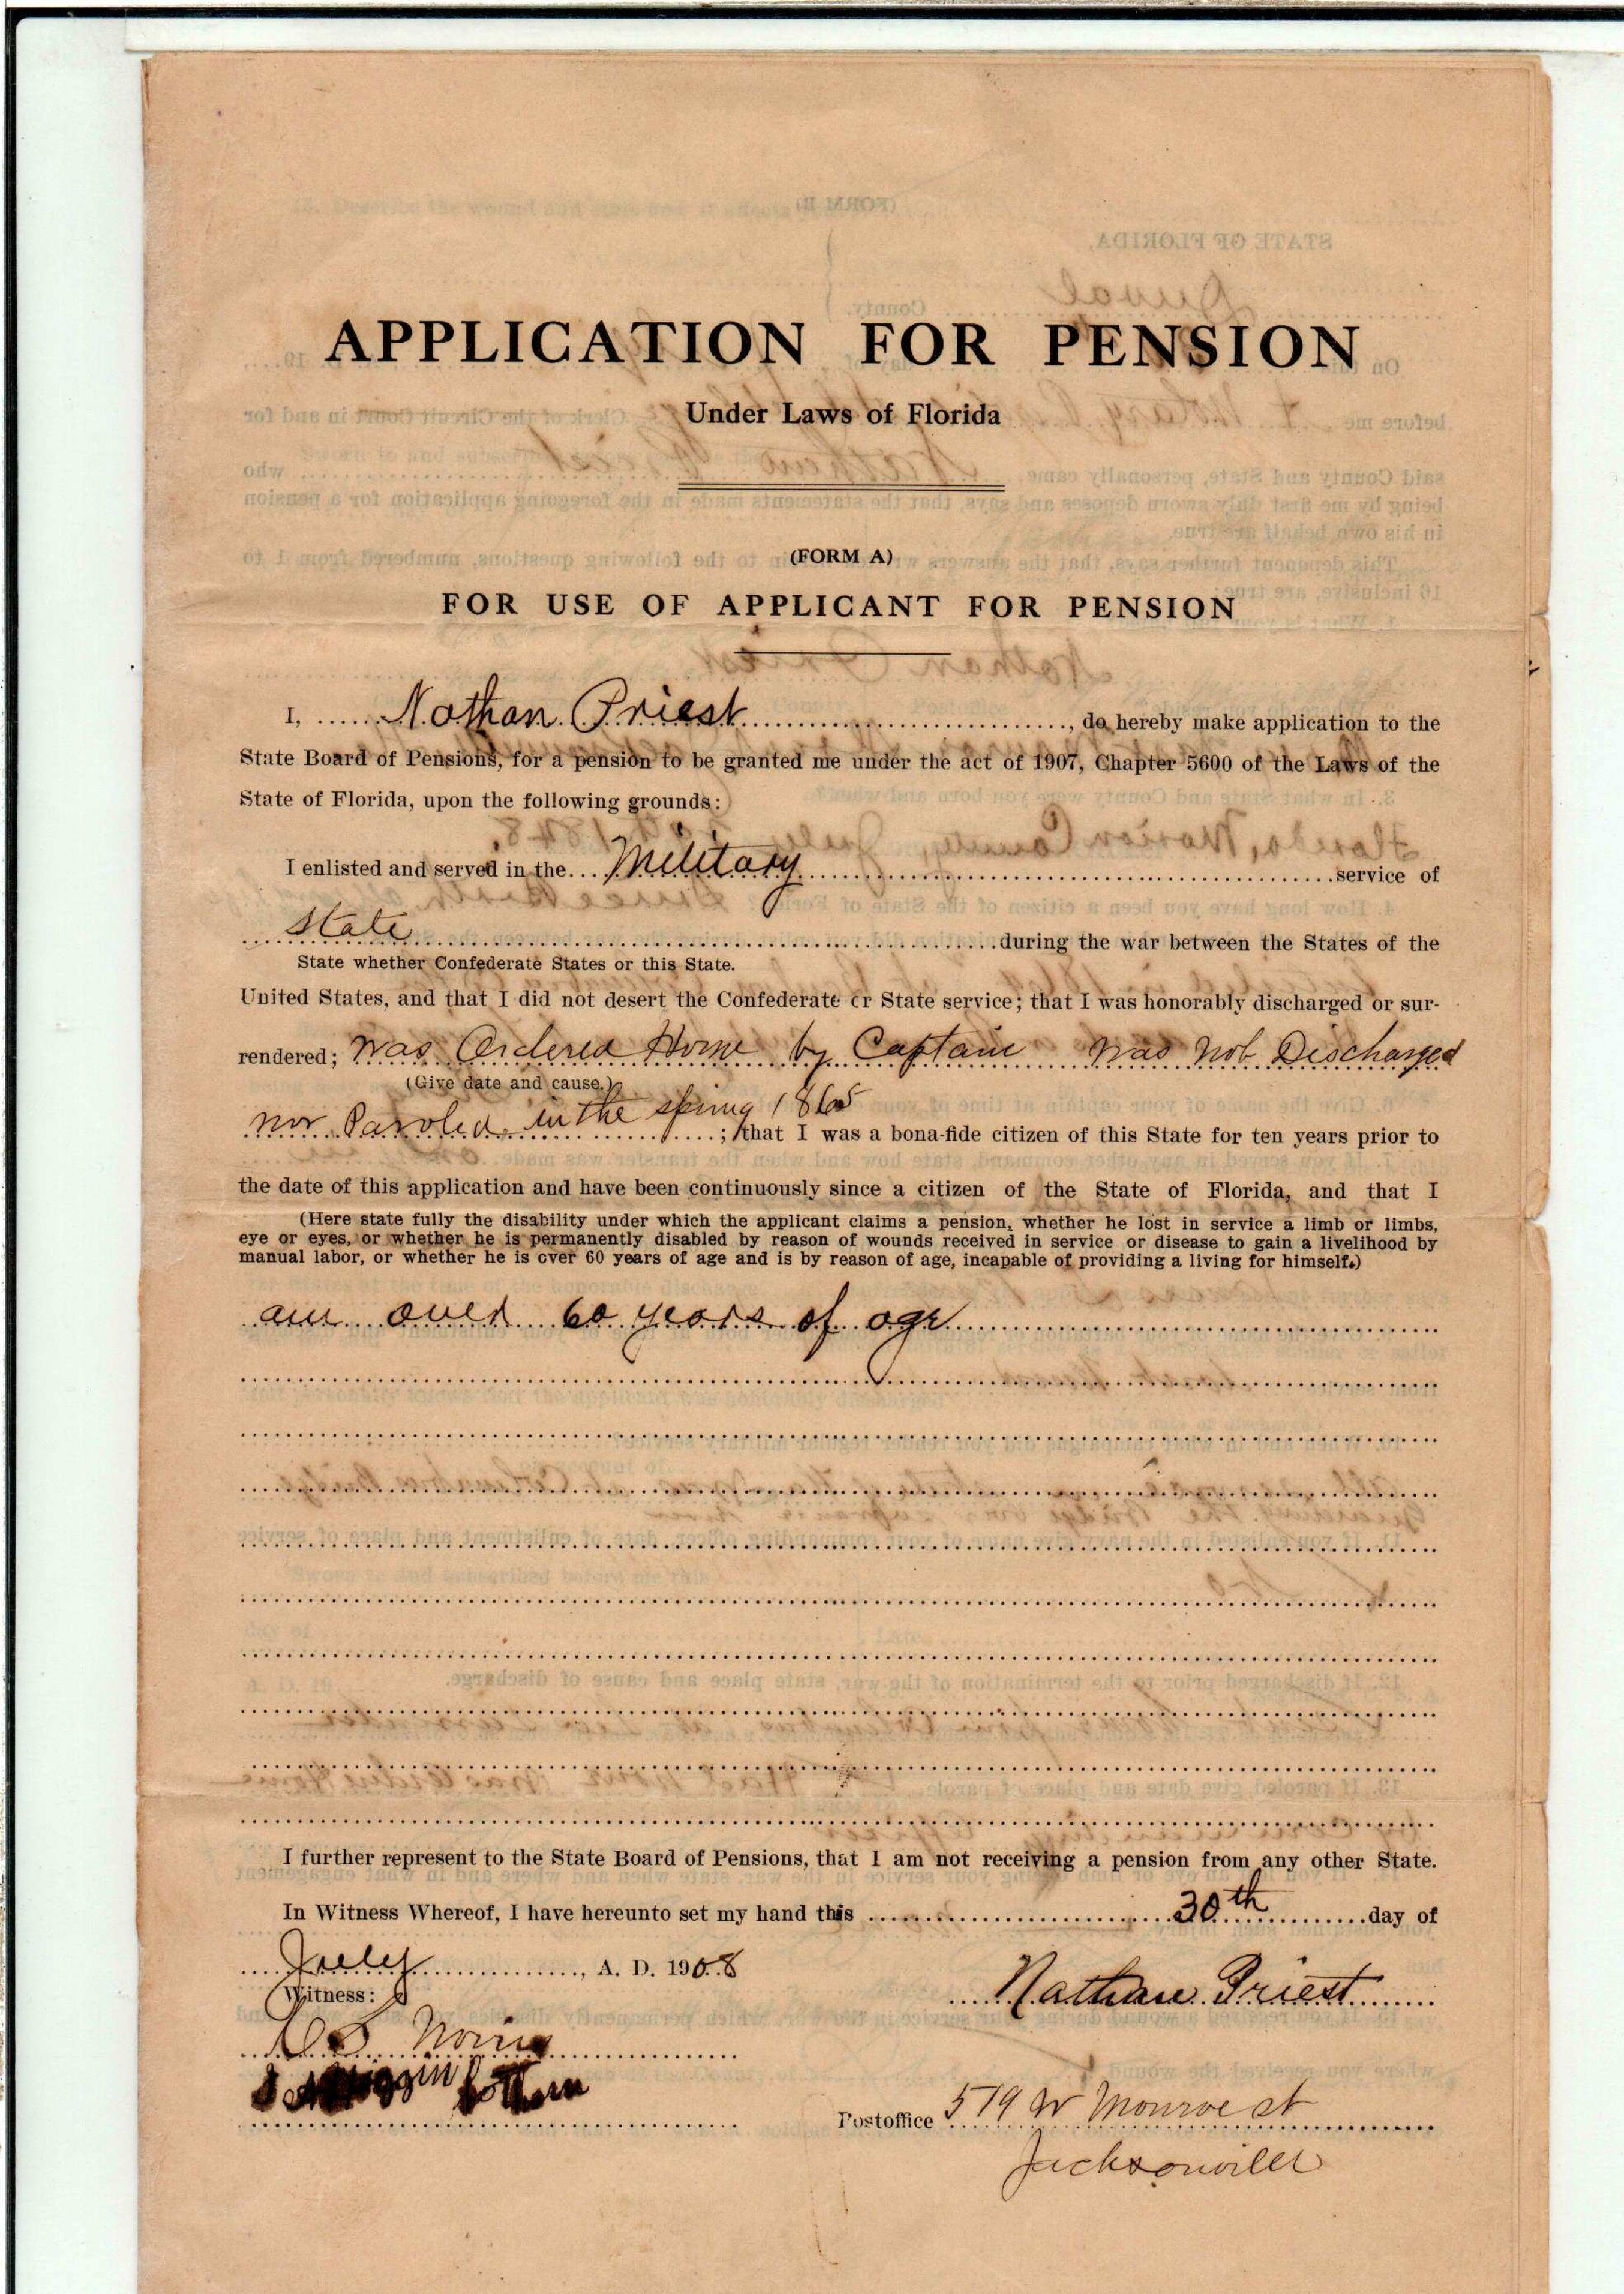 APPLICATION FOR PENSION
Under Laws of Florida
(FORM A)
FOR USE OF APPLICANT FOR PENSION
I, Nathan Priest, do hereby make application to the
State Board of Pensions, for a pension to be granted me under the act of 1907, Chapter 5600 of the Laws of the
State of Florida, upon the following grounds:
I enlisted and served in the Military service of
State during the war between the States of the
State whether Confederate States or this State.
United States, and that I did not desert the Confederate or State service; that I was honorably discharged or sur-
rendered; was Ordered Home by Captain was not Discharged
(Give date and cause.)
nor Paroled in the spring 1865; that I was a bona-fide citizen of this State for ten years prior to
the date of this application and have been continuously since a citizen of the State of Florida, and that I
(Here state fully the disability under which the applicant claims a pension, whether he lost in service a limb or limbs,
eye or eyes, or whether he is permanently disabled by reason of wounds received in service or disease to gain a livelihood by
manual labor, or whether he is over 60 years of age and is by reason of age, incapable of providing a living for himself.)
am over 60 years of age
I further represent to the State Board of Pensions, that I am not receiving a pension from any other State.
In Witness Whereof, I have hereunto set my hand this 30th day of
July, A. D. 1908
Witness:
Nathan Priest
Postoffice 519 W Monroe st
Jacksonville